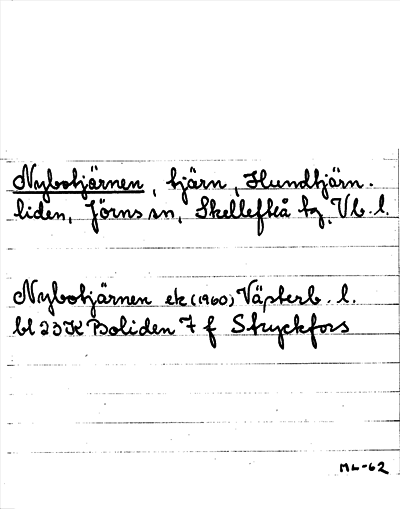 Nybotjärnen, tjärn, Hundtjärn.
liden, Jörns sn, Skellefteå tg. Vb. l.
Nybotjärnen ek (1960) Västerb. l.
bl 23K Boliden 7 f Stryckfors
ML-62